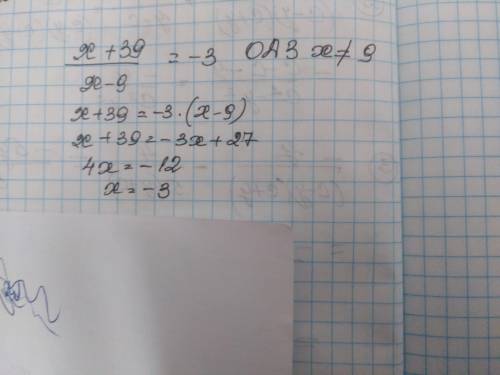 x + 39 / x - 9 = -3 ОДЗ x ≠ 9
x + 39 = -3 · (x - 9)
x + 39 = -3x + 27
4x = -12
x = -3